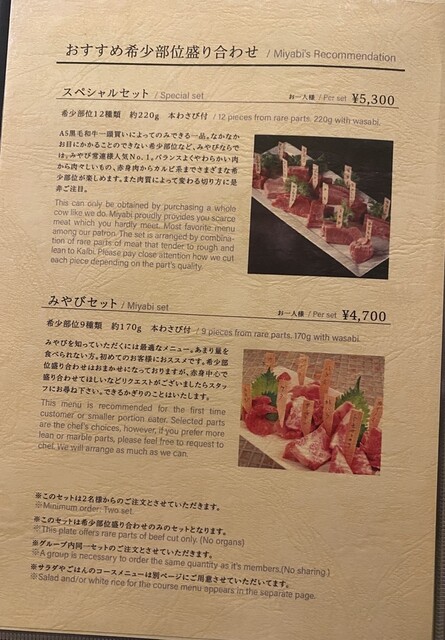 おすすめ希少部位盛り合わせ / Miyabi's Recommendation
スペシャルセット / Special set
お一人様 / Per set ¥5,300
希少部位12種類 約220g 本わさび付 / 12 pieces from rare parts. 220g with wasabi.
A5黒毛和牛一頭買いによってのみできる一品。なかなか
お目にかかることのできない希少部位など、みやびならで
は。みやび常連様人気No.1。バランスよくやわらかい肉
から肉々しいもの、赤身肉からカルビ系までさまざまな希
少部位が楽しめます。また肉質によって変わる切り方に是
非ご注目。
This can only be obtained by purchasing a whole
cow like we do. Miyabi proudly provides you scarce
meat which you hardly meet. Most favorite menu
among our patron. The set is arranged by combina-
tion of rare parts of meat that tender to rough and
lean to Kalbi. Please pay close attention how we cut
each piece depending on the part's quality.
みやびセット / Miyabi set
お一人様 / Per set ¥4,700
希少部位9種類 約170g 本わさび付 / 9 pieces from rare parts. 170g with wasabi.
みやびを知っていただくには最適なメニュー。あまり量を
食べられない方。初めてのお客様におススメです。希少部
位盛り合わせはおまかせになっておりますが、赤身中心で
盛り合わせてほしいなどリクエストがございましたらスタッ
フにお尋ね下さい。できるかぎりのことはいたします。
This menu is recommended for the first time
customer or smaller portion eater. Selected parts
are the chef's choices, however, if you prefer more
lean or marble parts, please feel free to request to
chef. We will arrange as much as we can.
※このセットは2名様からのご注文とさせていただきます。
※Minimum order: Two set.
※このセットは希少部位盛り合わせのみのセットとなります。
※This plate offers rare parts of beef cut only. (No organs)
※グループ内同一セットのご注文とさせていただきます。
※A group is necessary to order the same quantity as it's members.(No sharing.)
※サラダやごはんのコースメニューは別ページにご用意させていただいてます。
※Salad and/or white rice for the course menu appears in the separate page.